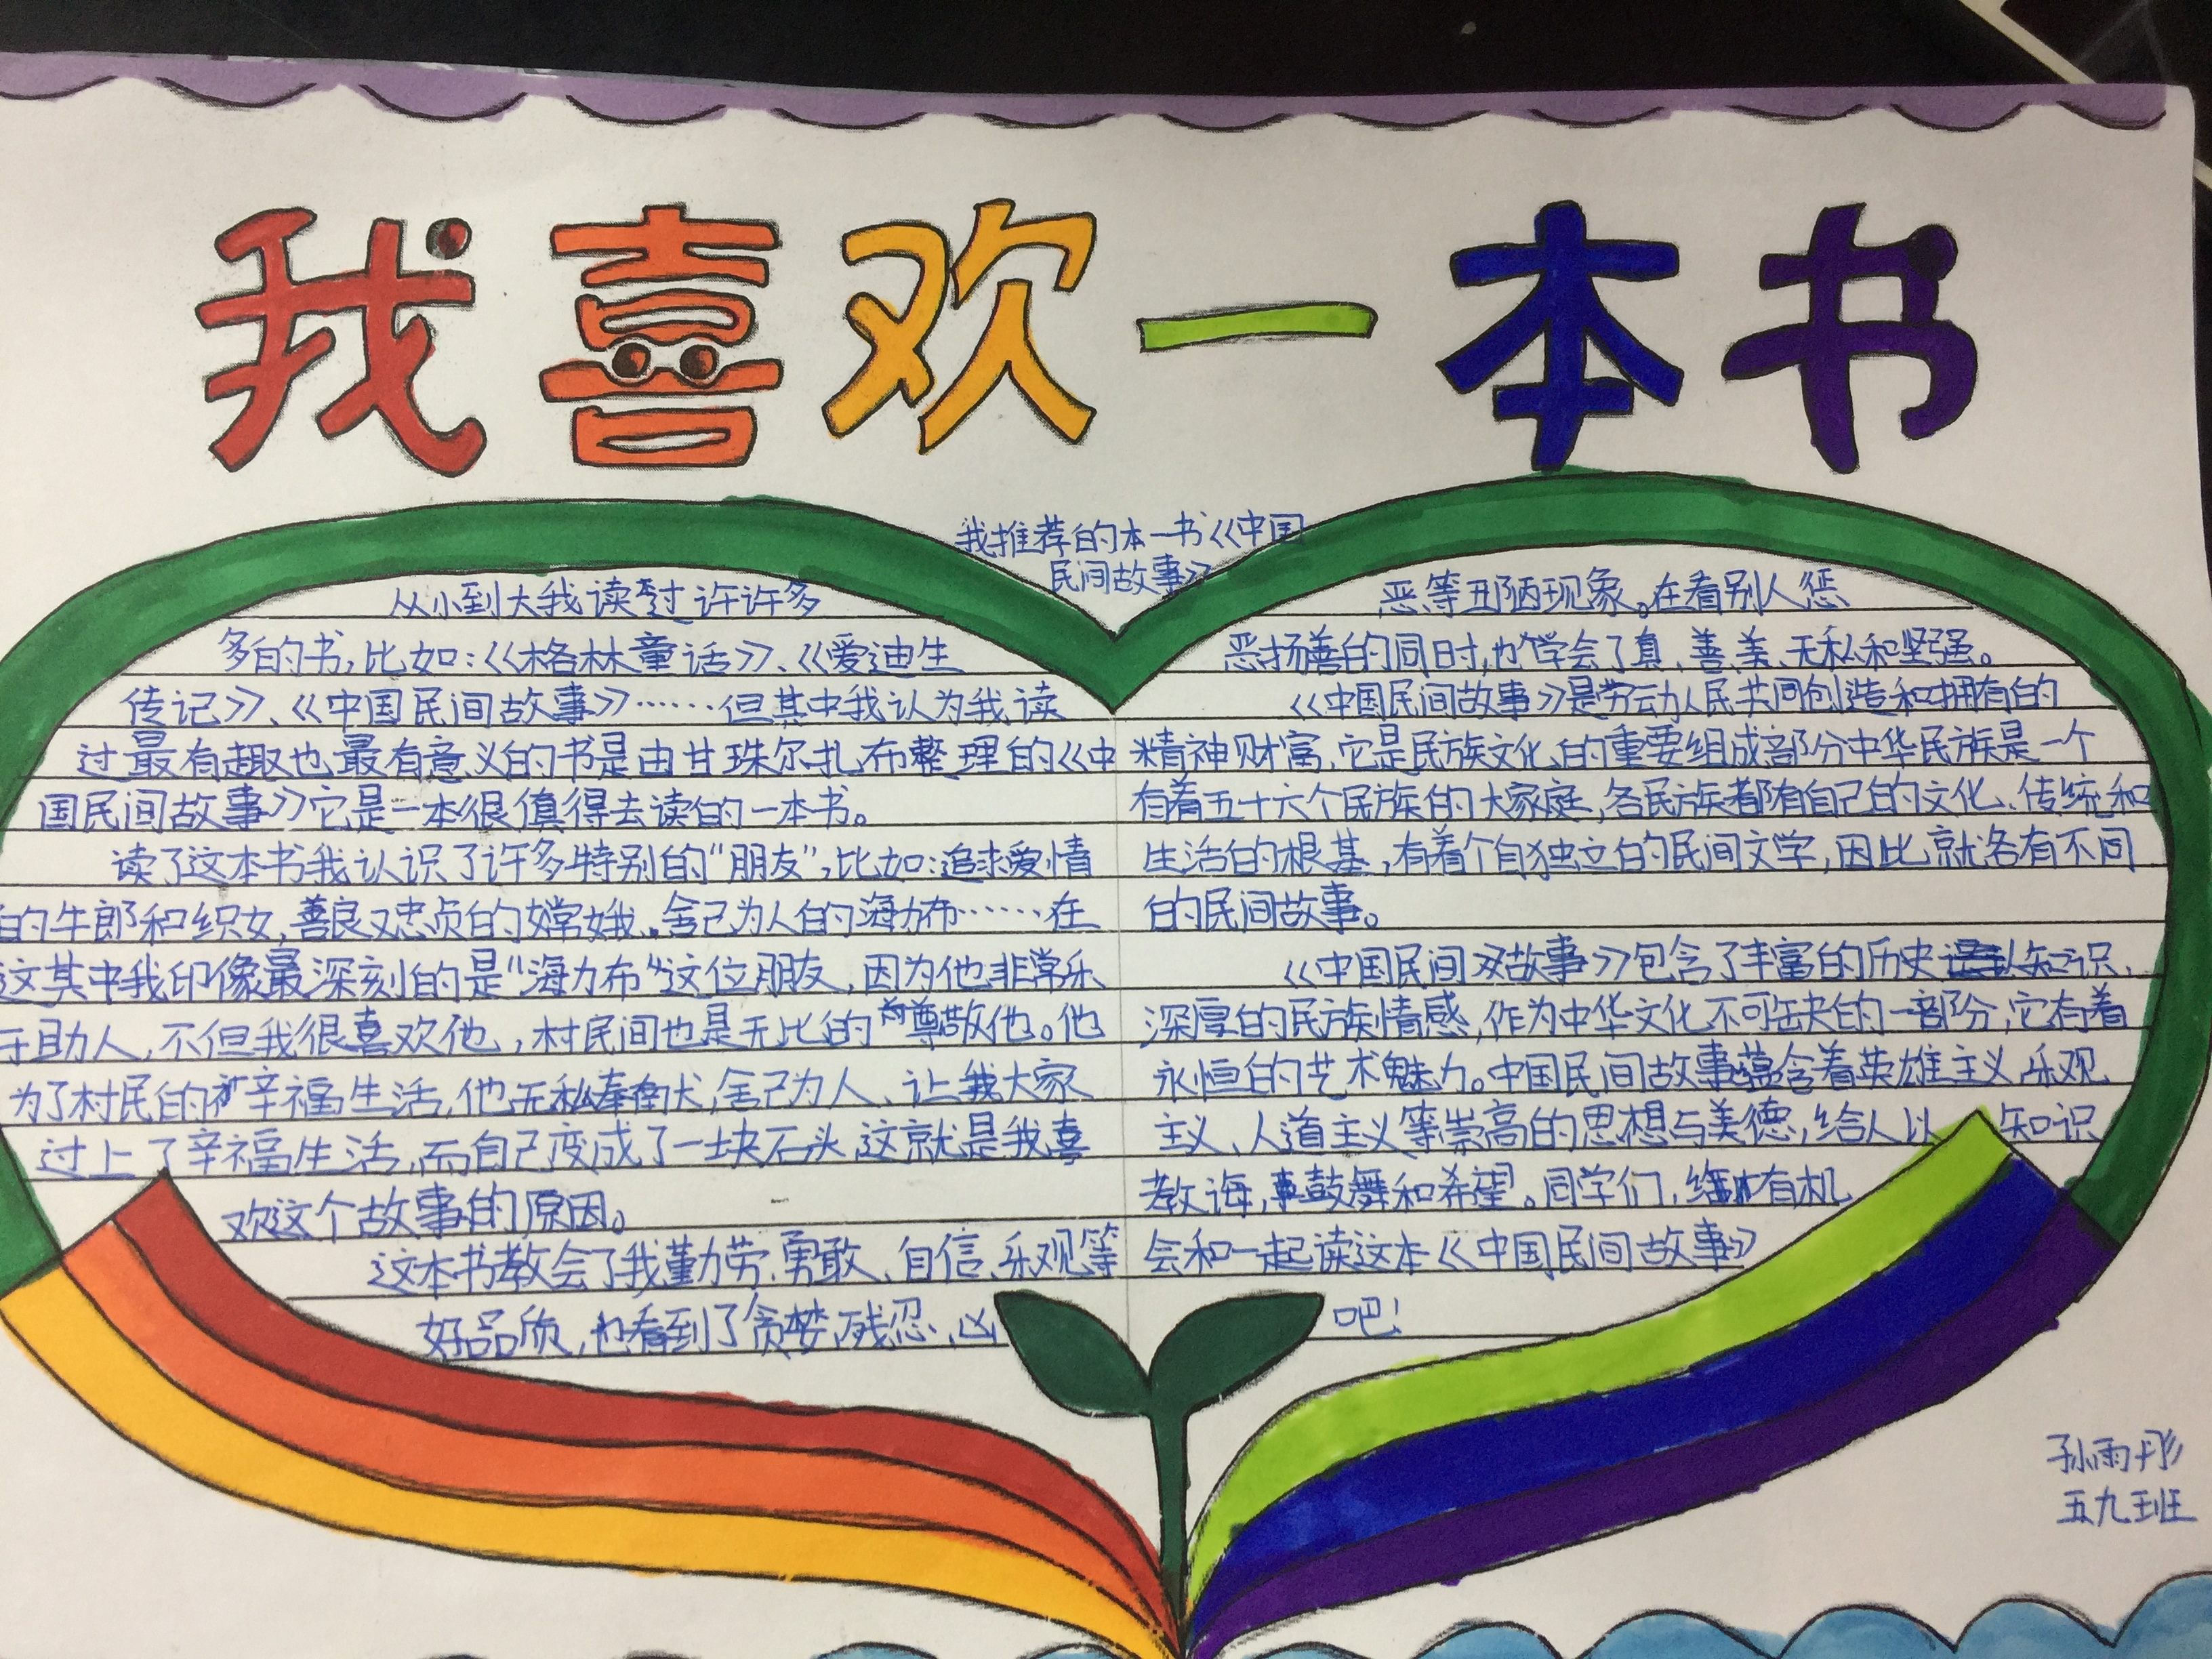 我喜欢一本书
我推荐的本一书《中国
民间故事》
从小到大我读过许许多
多的书,比如:《格林童话》、《爱迪生
传记》、《中国民间故事》……但其中我认为我读
过最有趣也最有意义的书是由甘珠尔扎布整理的《中
国民间故事》它是一本很值得去读的一本书。
读了这本书我认识了许多特别的“朋友”,比如:追求爱情
的牛郎和织女,善良又忠贞的嫦娥、舍己为人的海力布……在
这其中我印像最深刻的是“海力布“这位朋友,因为他非常乐
于助人,不但我很喜欢他,村民间也是无比的尊敬他。他
为了村民的幸福生活,他无私奉献,舍己为人、让我大家
过上了辛福生活,而自己变成了一块石头,这就是我喜
欢这个故事的原因。
这本书教会了我勤劳、勇敢、自信、乐观等
好品质,也看到了贪婪、残忍、凶
恶等丑陋现象。在看别人惩
恶扬善的同时,也学会了真、善、美、无私和坚强。
《中国民间故事》是劳动人民共同创造和拥有的
精神财富,它是民族文化的重要组成部分中华民族是一个
有着五十六个民族的大家庭,各民族都有自己的文化、传统和
生活的根基,有着个自独立的民间文学,因此就各有不同
的民间故事。
《中国民间故事》包含了丰富的历史知识,
深厚的民族情感,作为中华文化不可缺的一部分,它有着
永恒的艺术魅力。中国民间故事蕴含着英雄主义,乐观
主义、人道主义等崇高的思想与美德,给人以知识
教诲,鼓舞和希望。同学们,有机
会和一起读这本《中国民间故事》
吧!
孙雨彤
五九班